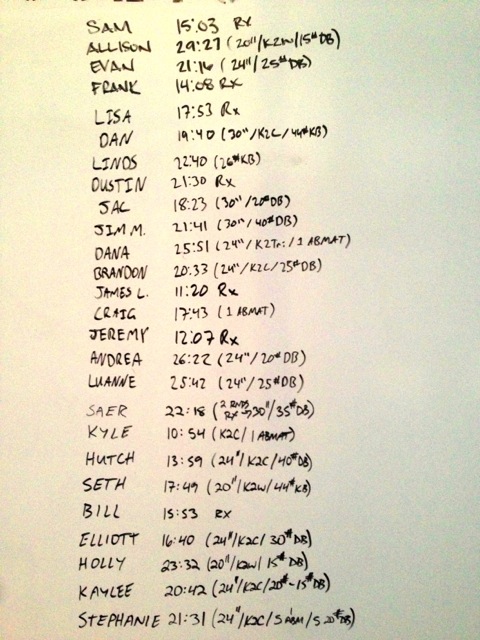 SAM 15:03 Rx
ALLISON 29:27 (20"/K2W/15# DB)
EVAN 21:16 (24"/25# DB)
FRANK 14:08 Rx
LISA 17:53 Rx
DAN 19:40 (30"/K2C/44# KB)
LINDS 22:40 (26# KB)
DUSTIN 21:30 Rx
JAC 18:23 (30"/20# DB)
JIM M. 21:41 (30"/40# DB)
DANA 25:51 (24"/K2Tri/1 ABMAT)
BRANDON 20:33 (24"/K2C/25# DB)
JAMES L. 11:20 Rx
CRAIG 17:43 (1 ABMAT)
JEREMY 12:07 Rx
ANDREA 26:22 (24"/20# DB)
LUANNE 25:42 (24"/25# DB)
SAER 22:18 (2 RNDS RX → 30"/35# DB)
KYLE 10:54 (K2C/1 ABMAT)
HUTCH 13:59 (24"/K2C/40# DB)
SETH 17:49 (20"/K2W/44# KB)
BILL 15:53 RX
ELLIOTT 16:40 (24"/K2C/30# DB)
HOLLY 23:32 (20"/K2W/15# DB)
KAYLEE 20:42 (24"/K2C/20#-15# DB)
STEPHANIE 21:31 (24"/K2C/5 ABM/5 20# DB)